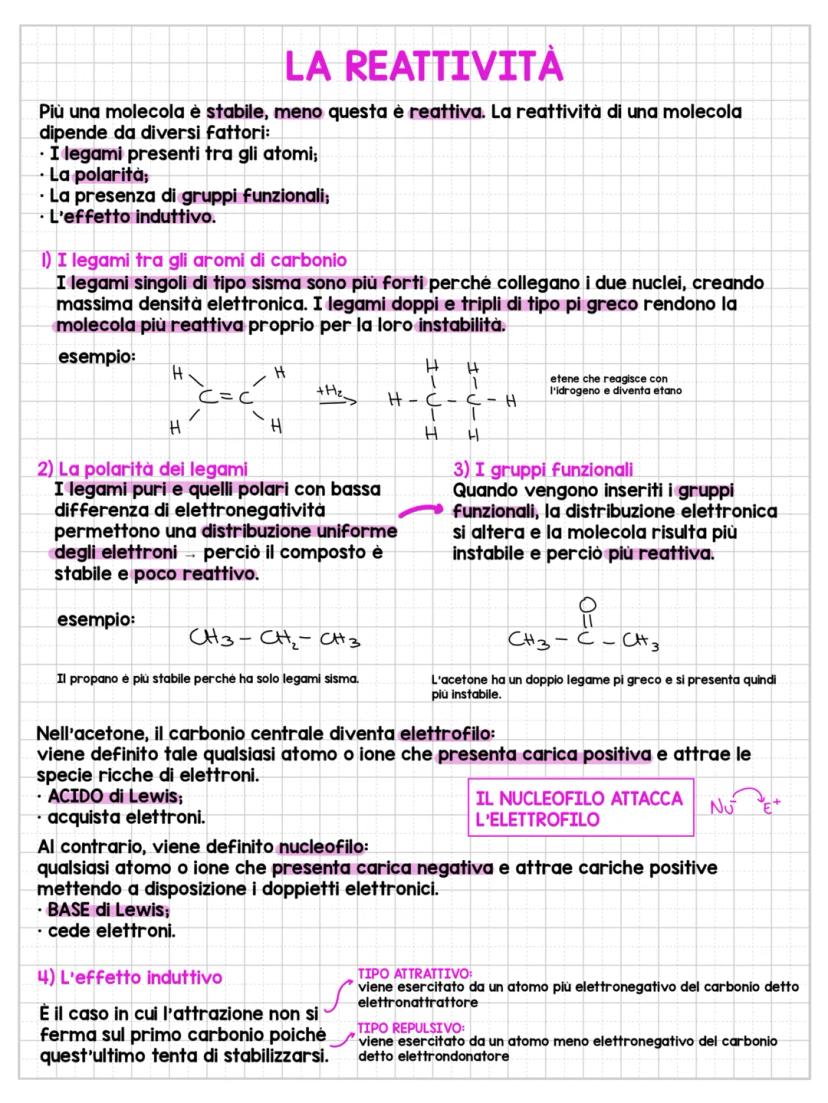 LA REATTIVITÀ
Più una molecola è stabile, meno questa è reattiva. La reattività di una molecola
dipende da diversi fattori:
· I legami presenti tra gli atomi;
· La polarità;
· La presenza di gruppi funzionali;
· L'effetto induttivo.
1) I legami tra gli aromi di carbonio
I legami singoli di tipo sisma sono più forti perché collegano i due nuclei, creando
massima densità elettronica. I legami doppi e tripli di tipo pi greco rendono la
molecola più reattiva proprio per la loro instabilità.
esempio:
H H H H
C = C +H₂ H - C - C - H
H H H H
etene che reagisce con
l'idrogeno e diventa etano
2) La polarità dei legami
I legami puri e quelli polari con bassa
differenza di elettronegatività
permettono una distribuzione uniforme
degli elettroni → perciò il composto è
stabile e poco reattivo.
3) I gruppi funzionali
Quando vengono inseriti i gruppi
funzionali, la distribuzione elettronica
si altera e la molecola risulta più
instabile e perciò più reattiva.
esempio:
CH3 - CH₂ - CH3
O
CH3 - C - CH3
Il propano é più stabile perché ha solo legami sisma.
L'acetone ha un doppio legame pi greco e si presenta quindi
più instabile.
Nell'acetone, il carbonio centrale diventa elettrofilo:
viene definito tale qualsiasi atomo o ione che presenta carica positiva e attrae le
specie ricche di elettroni.
· ACIDO di Lewis;
· acquista elettroni.
IL NUCLEOFILO ATTACCA
L'ELETTROFILO
Nu⁻ E⁺
Al contrario, viene definito nucleofilo:
qualsiasi atomo o ione che presenta carica negativa e attrae cariche positive
mettendo a disposizione i doppietti elettronici.
· BASE di Lewis;
· cede elettroni.
4) L'effetto induttivo
È il caso in cui l'attrazione non si
ferma sul primo carbonio poiché
quest'ultimo tenta di stabilizzarsi.
TIPO ATTRATTIVO:
viene esercitato da un atomo più elettronegativo del carbonio detto
elettronattrattore
TIPO REPULSIVO:
viene esercitato da un atomo meno elettronegativo del carbonio
detto elettrondonatore